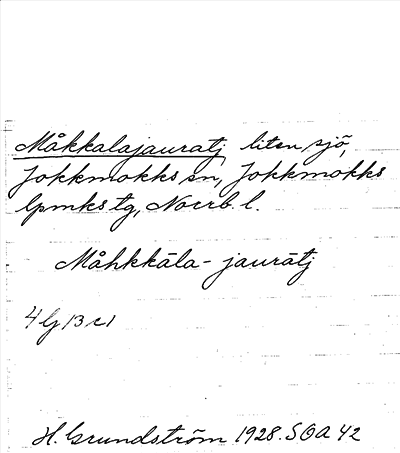 Måkkalajauratj, liten sjö,
Jokkmokks sn, Jokkmokks
lpmks tg, Norrb. l.
Måhkkāla-jaurātj
4 G 13 c 1
H. Grundström 1928. SOA 42